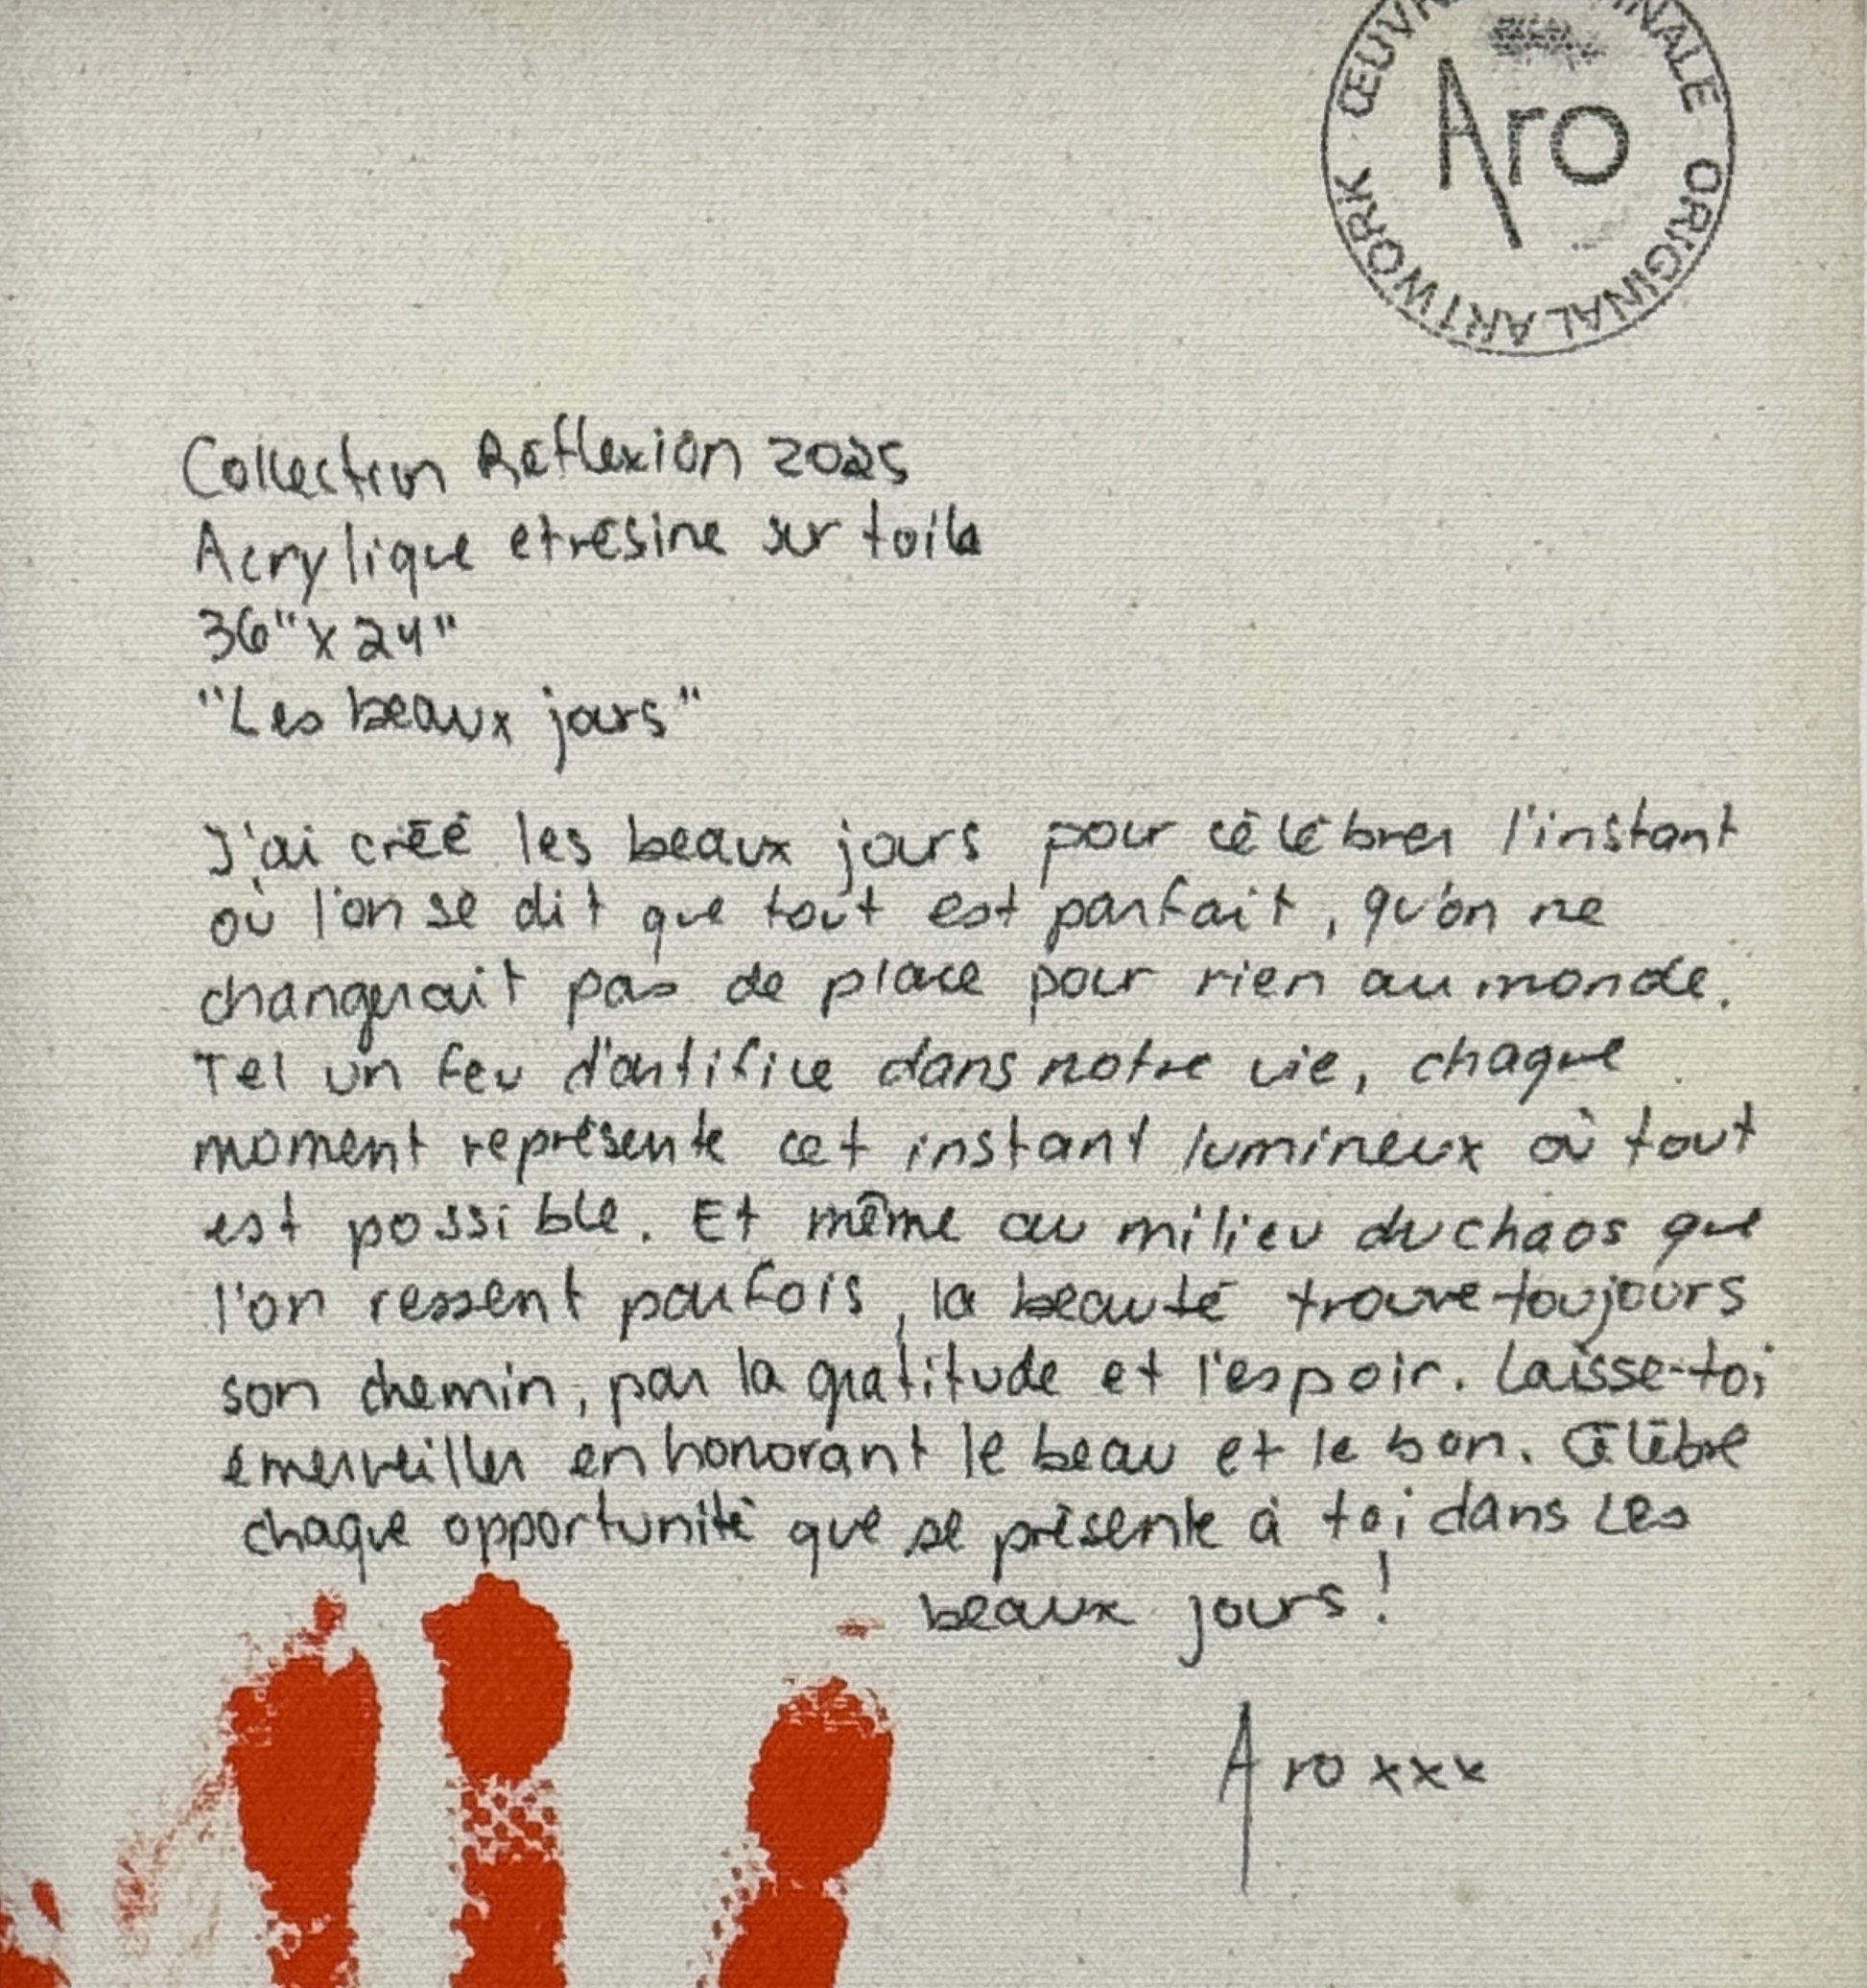 ŒUVR
INALE
Aro
ORIGINAL ARTWORK
Collection Réflexion 2025
Acrylique et résine sur toile
36" x 24"
"Les beaux jours"
J'ai créé les beaux jours pour célébrer l'instant
où l'on se dit que tout est parfait, qu'on ne
changerait pas de place pour rien au monde.
Tel un feu d'artifice dans notre vie, chaque
moment représente cet instant lumineux où tout
est possible. Et même au milieu du chaos que
l'on ressent parfois, la beauté trouve toujours
son chemin, par la gratitude et l'espoir. Laisse-toi
émerveiller en honorant le beau et le bon. Célèbre
chaque opportunité que se présente à toi dans Les
beaux jours!
Aro xxx